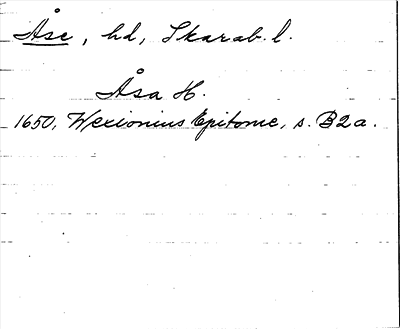 Åse, hd, Skarab. l.
Åsa H.
1650, Wexionius Epitome, s. B2a.